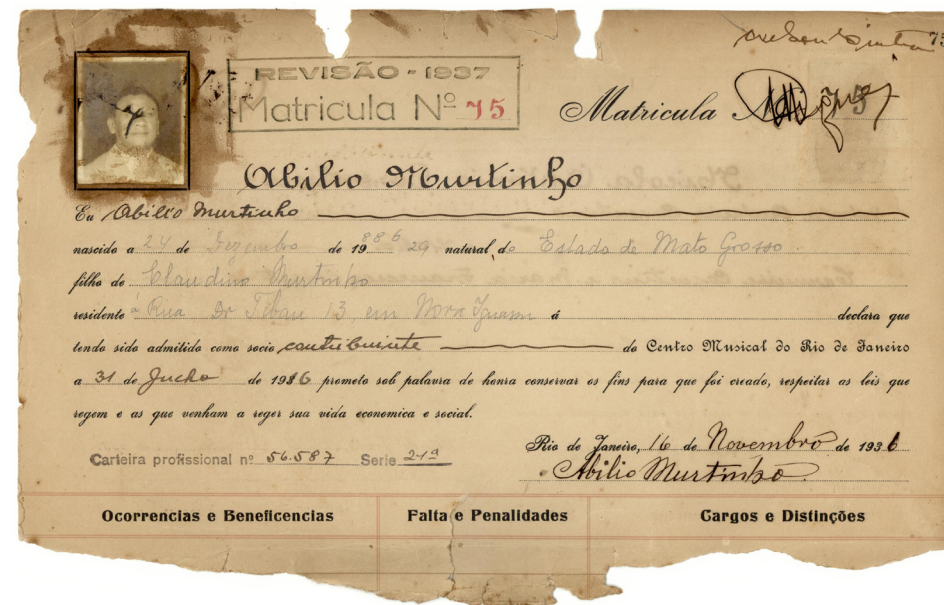 75
REVISÃO - 1937
Matricula Nº 75
Matricula
Abilio Murtinho
Eu Abilio Murtinho
nascido a 24 de Dezembro de 1986 natural do Estado de Mato Grosso
filho de Claudino Murtinho
residente á Rua Dr Tibau 13, em Nova Iguassú á declara que
tendo sido admitido como socio contribuinte do Centro Musical do Rio de Janeiro
a 31 de Julho de 1936 prometo sob palavra de honra conservar os fins para que foi creado, respeitar as leis que
regem e as que venham a reger sua vida economica e social.
Rio de Janeiro, 16 de Novembro de 1936
Carteira profissional nº 56.587 Serie 21ª
Abilio Murtinho
Ocorrencias e Beneficencias Falta e Penalidades Cargos e Distinções